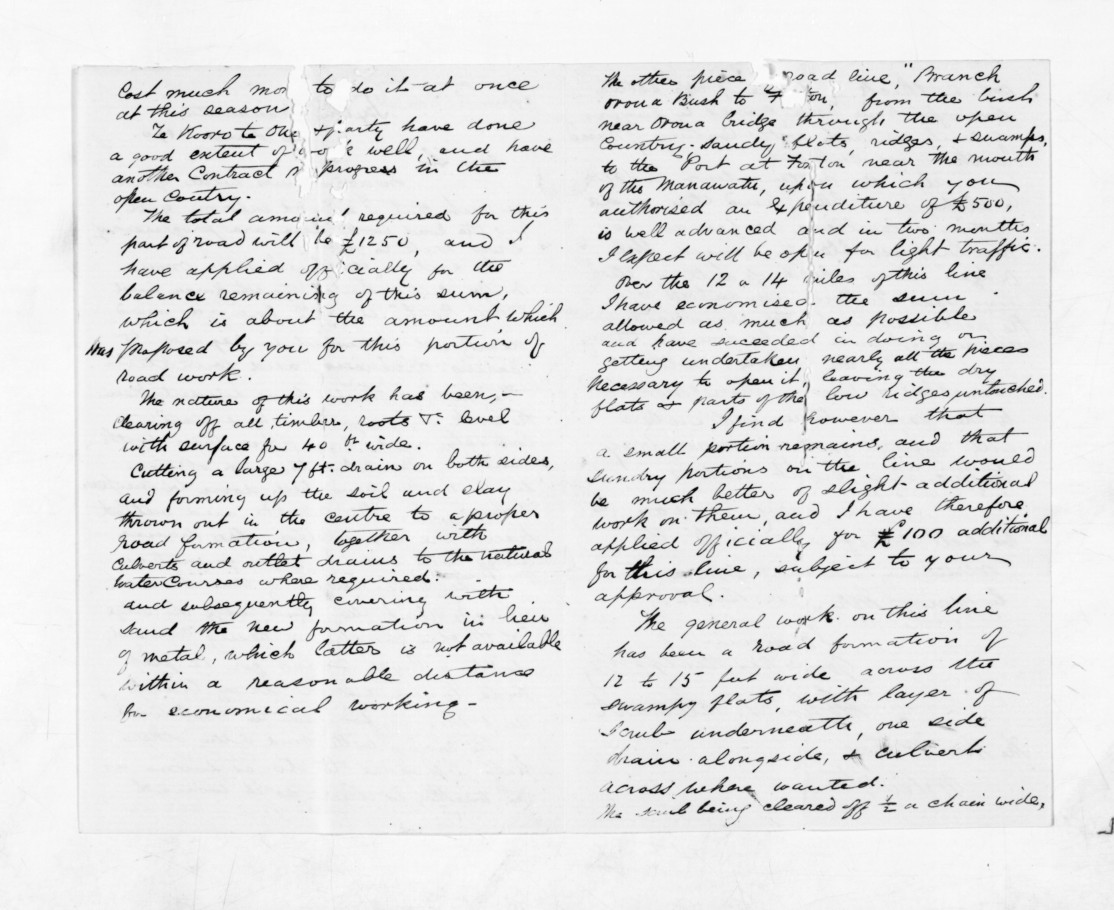 Cost much mor to do it at once
at this season
Te Kooro te One & party have done
a good extent of & well, and have
another Contract progress in the
open Coutry.
The total amoun required for this
part of road will be £1250, and I
have applied officially for the
balance remaining of this sum,
which is about the amount which
was proposed by you for this portion of
road work.
The nature of this work has been,—
Clearing off all timber, roots &c level
with surface for 40 ft wide.
Cutting a large 7 ft. drain on both sides,
and forming up the soil and clay
thrown out in the centre to a proper
road formation, together with
Culverts and outlet drains to the natural
Water Courses where required.
and subsequently covering with
sand the new formation in lieu
of metal, which latter is not available
within a reasonable distance
for economical working—
The other piece road line, "Branch
Oroua Bush to on, from the bush
near Oroua bridge through the open
Country - sandy flats, ridges, & swamps,
to the Port at Foxton near the mouth
of the Manawatu, upon which you
authorised an Expenditure of £500,
is well advanced and in two months
I expect will be open for light traffic.
Over the 12 a 14 miles of this line
I have economised the sum
allowed as much as possible
and have suceeded in doing or
getting undertaken nearly all the pieces
necessary to open it, leaving the dry
flats & parts of the low ridges untouched.
I find however that
a small portion remains, and that
sundry portions on the line would
be much better of slight additional
work on them, and I have therefore
applied officially for £100 additional
for this line, subject to your
approval.
The general work on this line
has been a road formation of
12 to 15 feet wide across the
swampy flats, with layer of
scrub underneath, one side
drain alongside, & culverts
across where wanted.
The scrub being cleared off ½ a chain wide,